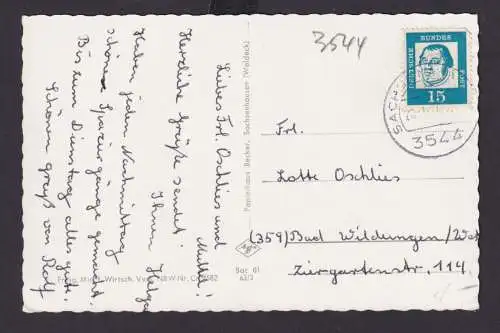 Liebes Frl. Oschlies und
Mutti!
Herzliche Grüße sendet
Ihnen Helga
Haben jeden Nachmittag
schöne Spaziergänge gemacht.
Bis zum Dienstag alles gut.
Schönen gruß von Rolf
3544
DEUTSCHE
BUNDES
POST
15
SACHS
3544
Papierhaus Becker, Sachsenhausen (Waldeck)
Frl.
Lotte Oschlies
(359) Bad Wildungen/Wa
Ziergartenstr. 114
Sac 61
63/3
Wirtsch. NRW Nr.